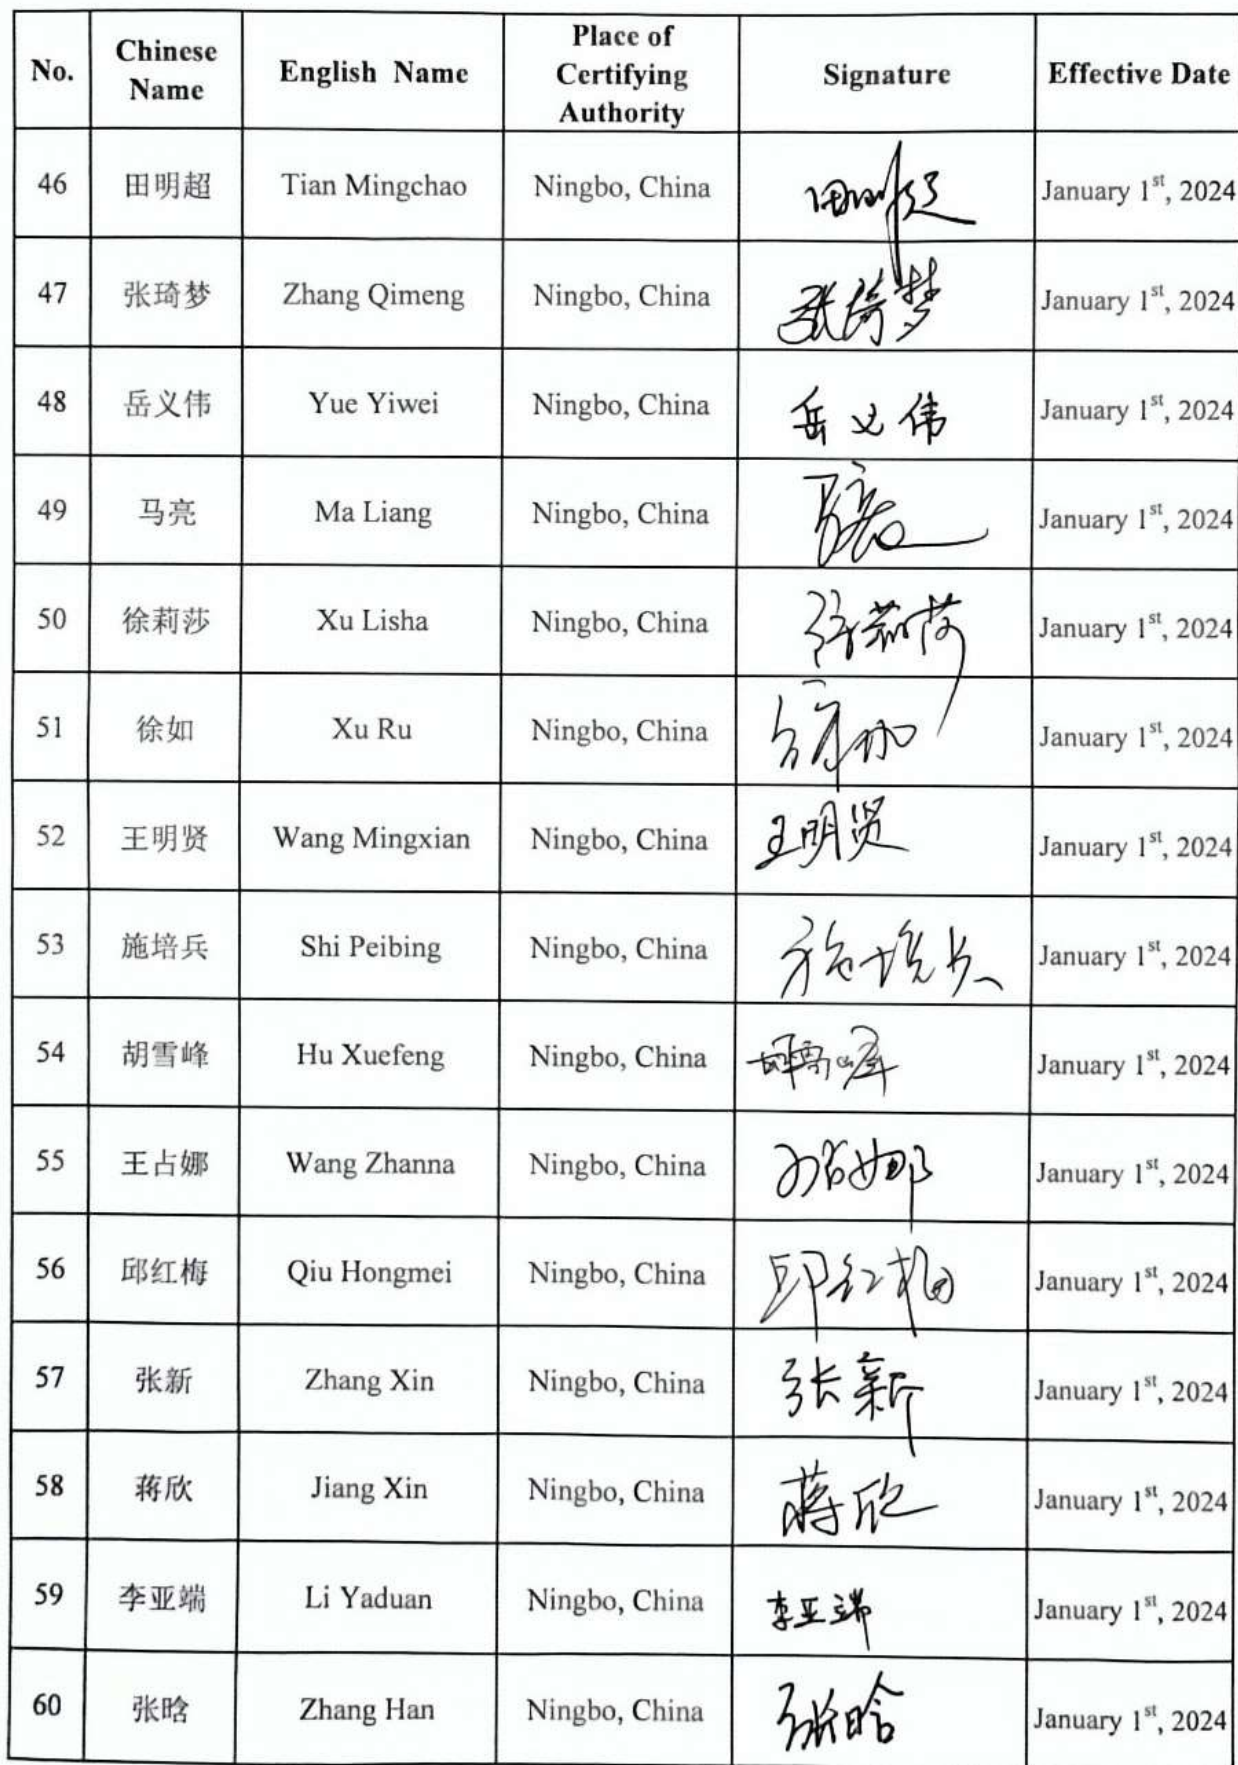 No. Chinese Name English Name Place of Certifying Authority Signature Effective Date
46 田明超 Tian Mingchao Ningbo, China 田明超 January 1st, 2024
47 张琦梦 Zhang Qimeng Ningbo, China 张琦梦 January 1st, 2024
48 岳义伟 Yue Yiwei Ningbo, China 岳义伟 January 1st, 2024
49 马亮 Ma Liang Ningbo, China 马亮 January 1st, 2024
50 徐莉莎 Xu Lisha Ningbo, China 徐莉莎 January 1st, 2024
51 徐如 Xu Ru Ningbo, China 徐如 January 1st, 2024
52 王明贤 Wang Mingxian Ningbo, China 王明贤 January 1st, 2024
53 施培兵 Shi Peibing Ningbo, China 施培兵 January 1st, 2024
54 胡雪峰 Hu Xuefeng Ningbo, China 胡雪峰 January 1st, 2024
55 王占娜 Wang Zhanna Ningbo, China 王占娜 January 1st, 2024
56 邱红梅 Qiu Hongmei Ningbo, China 邱红梅 January 1st, 2024
57 张新 Zhang Xin Ningbo, China 张新 January 1st, 2024
58 蒋欣 Jiang Xin Ningbo, China 蒋欣 January 1st, 2024
59 李亚端 Li Yaduan Ningbo, China 李亚端 January 1st, 2024
60 张晗 Zhang Han Ningbo, China 张晗 January 1st, 2024